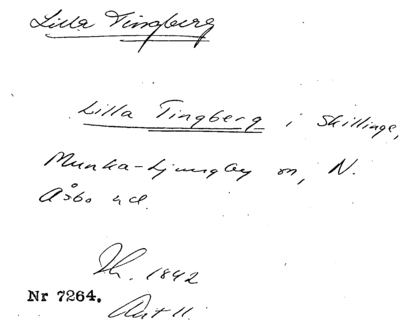 Lilla Tingberg
Lilla Tingberg i Skillinge,
Munka-Ljungby sn, N.
Åsbo hd.
Th. 1842
Nr 7264.
Avt 11.